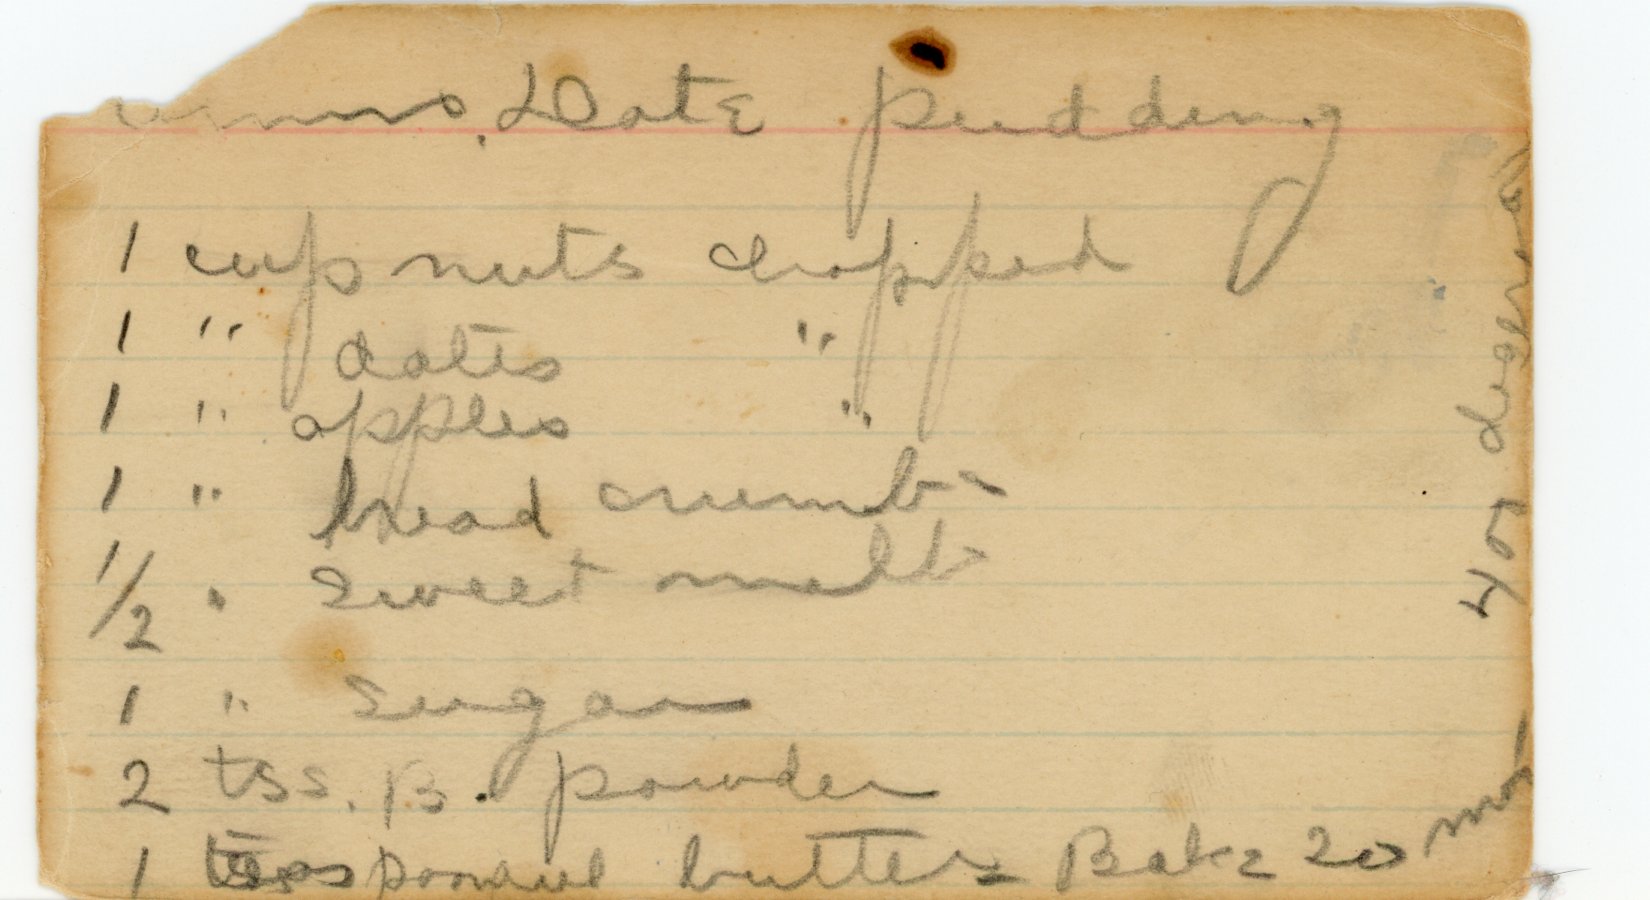 Date Pudding
1 cup nuts chopped
1 " dates "
1 " apples "
1 " bread crumbs
1/2 " sweet milk
1 " sugar
2 tss. B. powder
1 teaspoonful butter Bake 20 min
400 degrees